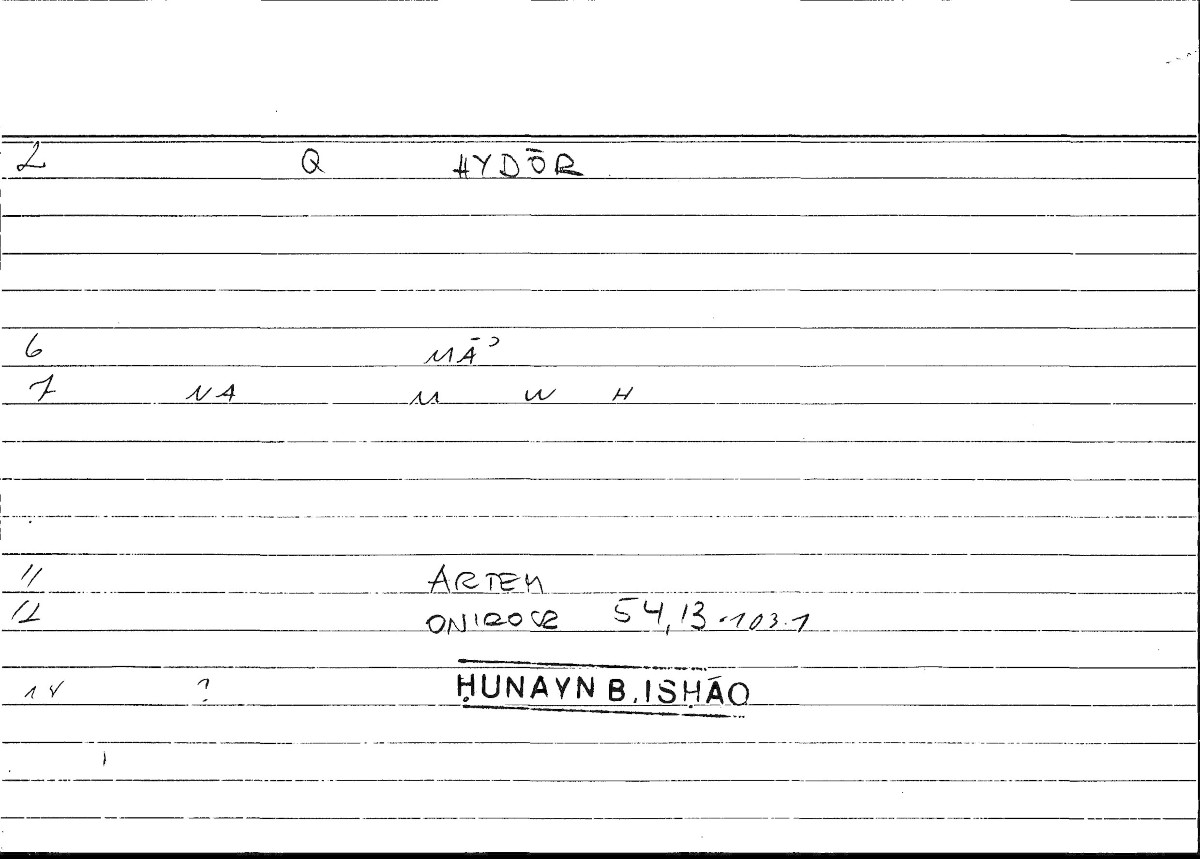 2 Q HYDŌR
6 MĀʾ
7 NA M W H
11 ARTEM
12 ONIROCR 54,13.103.1
14 ? ḤUNAYN B. ISḤĀQ